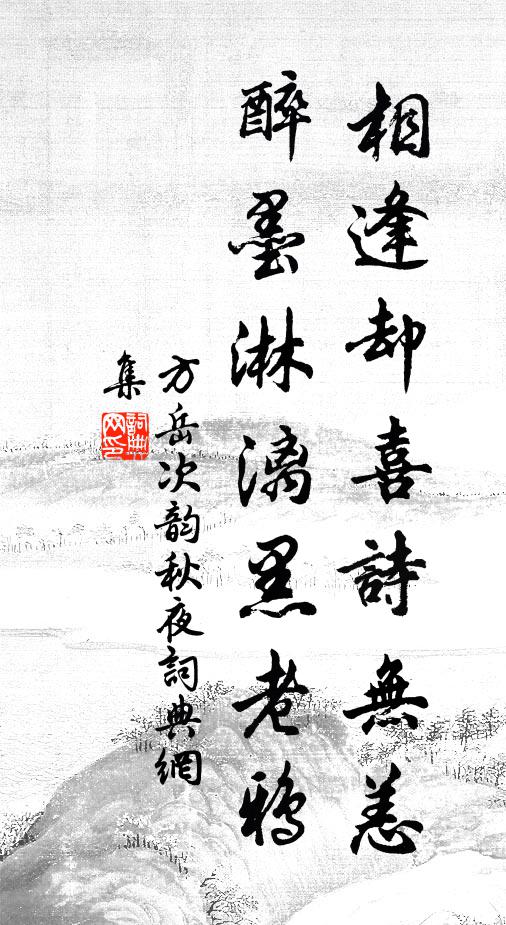 相逢却喜詩無恙
醉墨淋漓黑老鴉
方岳次韵秋夜詞典網
集
詞典網印